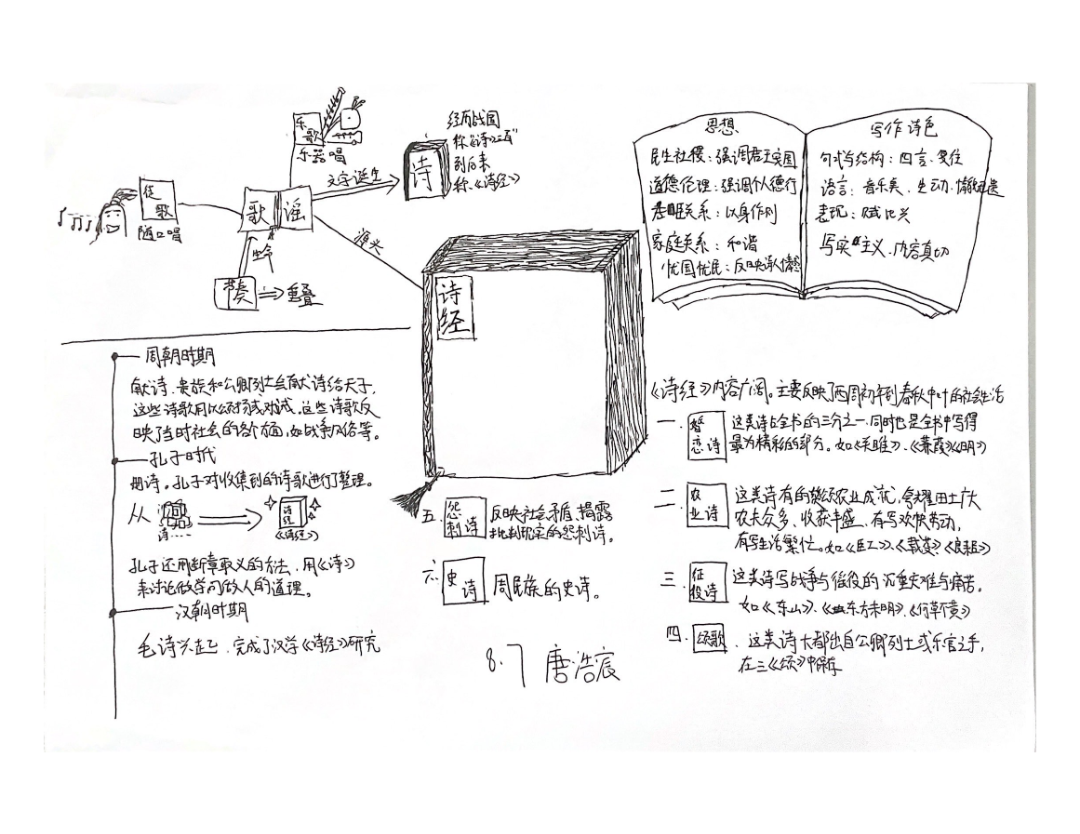 乐歌
乐器唱
经历战国
称"诗三百"
到后来
称《诗经》
文字诞生
诗
徒歌
随口唱
歌谣
源头
节奏
重叠
诗经
思想
民生社稷：强调君主安国
道德伦理：强调个人德行
关系：以身作则
家庭关系：和谐
忧国忧民：反映
写作诗色
句式与结构：四言、复沓
语言：音乐美、生动、
表现：赋比兴
写实主义、内容真切
周朝时期
献诗、贵族和公卿列士会献诗给天子，
这些诗歌用以、这些诗歌反
映了当时社会的各个方面，如战争风俗等。
孔子时代
删诗。孔子对收集到的诗歌进行了整理。
从
诗……
诗经
《诗经》
孔子还用断章取义的方法、用《诗》
来讨论做学问做人的道理。
汉朝时期
毛诗兴起、完成了汉学《诗经》研究
《诗经》内容广阔。主要反映了西周初年到春秋中叶的社会生活
一、
婚恋诗
这类诗占全书的三分之一、同时也是全书中写得
最为精彩的部分。如《关雎》、《蒹葭》《》
二、
农业诗
这类诗有的赞颂农业成就，夸耀田土广大
农夫众多、收获丰盛、有写欢快劳动，
有写生活繁忙。如《臣工》、《载芟》《良耜》
三、
征役诗
这类诗写战争与徭役的沉重灾难与痛苦。
如《东山》、《东方未明》、《何草不黄》
四、
颂歌
、这类诗大都出自公卿列士或乐官之手，
在三《颂》中保存
五、
怨刺诗
反映社会矛盾、揭露
批判现实的怨刺诗。
六、
史诗
周民族的史诗。
8.7 唐浩宸